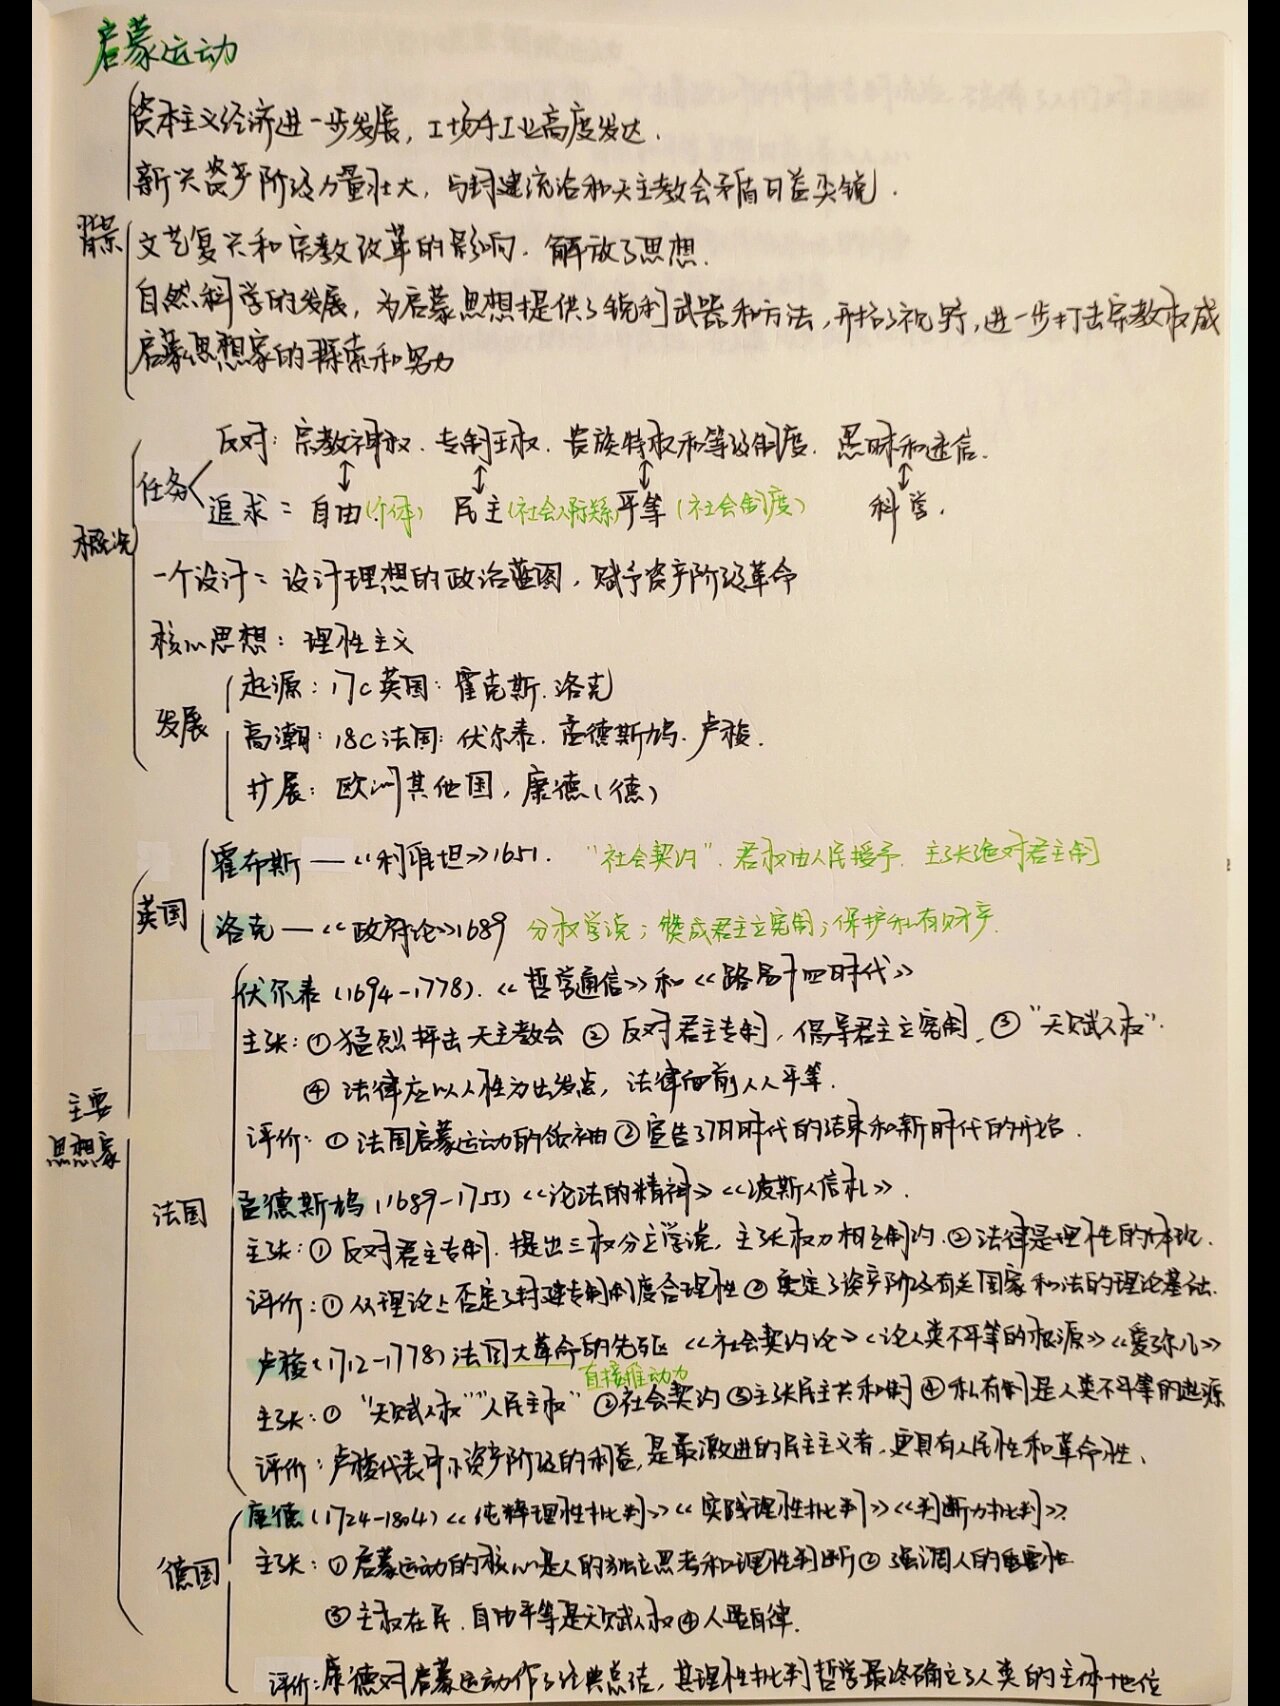 启蒙运动
资本主义经济进一步发展，工场手工业高度发达.
新兴资产阶级力量壮大，与封建统治和天主教会矛盾日益尖锐.
背景
文艺复兴和宗教改革的影响.解放了思想.
自然科学的发展，为启蒙思想提供了锐利武器和方法,开拓了视野,进一步打击宗教权威
启蒙思想家的探索和努力
反对：宗教神权.专制王权.贵族特权和等级制度.愚昧和迷信.
任务
追求：自由(个体) 民主(社会人际关系)平等(社会制度) 科学.
概况
一个设计：设计理想的政治蓝图，赋予资产阶级革命
核心思想：理性主义
起源：17c英国：霍克斯.洛克
发展
高潮：18c法国：伏尔泰.孟德斯鸠.卢梭.
扩展：欧洲其他国，康德(德)
霍布斯—《利维坦》1651. "社会契约".君权由人民授予.主张绝对君主制
英国
洛克—《政府论》1689 分权学说；赞成君主立宪制；保护私有财产.
伏尔泰(1694-1778).《哲学通信》和《路易十四时代》
主张：①猛烈抨击天主教会 ②反对君主专制，倡导君主立宪制.③"天赋人权".
④法律应以人性为出发点，法律面前人人平等.
主要
评价：①法国启蒙运动的领袖②宣告了旧时代的结束和新时代的开始.
思想家
法国
孟德斯鸠(1689-1755)《论法的精神》《波斯人信札》.
主张：①反对君主专制.提出三权分立学说，主张权力相互制约.②法律是理性的体现.
评价：①从理论上否定了封建专制制度合理性②奠定了资产阶级有关国家和法的理论基础.
卢梭(1712-1778)法国大革命的先驱《社会契约论》《论人类不平等的根源》《爱弥儿》
直接推动力
主张：①"天赋人权""人民主权"②社会契约③主张民主共和制④私有制是人类不平等的起源
评价：卢梭代表中小资产阶级的利益,是最激进的民主主义者,更具有人民性和革命性.
康德(1724-1804)《纯粹理性批判》《实践理性批判》《判断力批判》
主张：①启蒙运动的核心是人的独立思考和理性判断②强调人的重要性
德国
③主权在民.自由平等是天赋人权④人要自律.
评价：康德对启蒙运动作了经典总结，其理性批判哲学最终确立了人类的主体地位